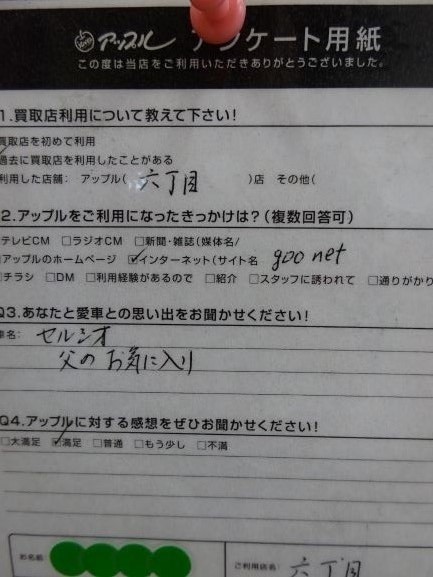 アップル アンケート用紙
この度は当店をご利用いただきありがとうございました。
1.買取店利用について教えて下さい!
買取店を初めて利用
過去に買取店を利用したことがある
利用した店舗: アップル( 六丁目 )店 その他(
2.アップルをご利用になったきっかけは?(複数回答可)
テレビCM □ラジオCM □新聞・雑誌(媒体名/
アップルのホームページ ☑インターネット(サイト名 goo net
チラシ □DM □利用経験があるので □紹介 □スタッフに誘われて □通りがかり
Q3.あなたと愛車との思い出をお聞かせください!
車名: セルシオ
父のお気に入り
Q4.アップルに対する感想をぜひお聞かせください!
□大満足 ☑満足 □普通 □もう少し □不満
お名前 ご利用店名: 六丁目